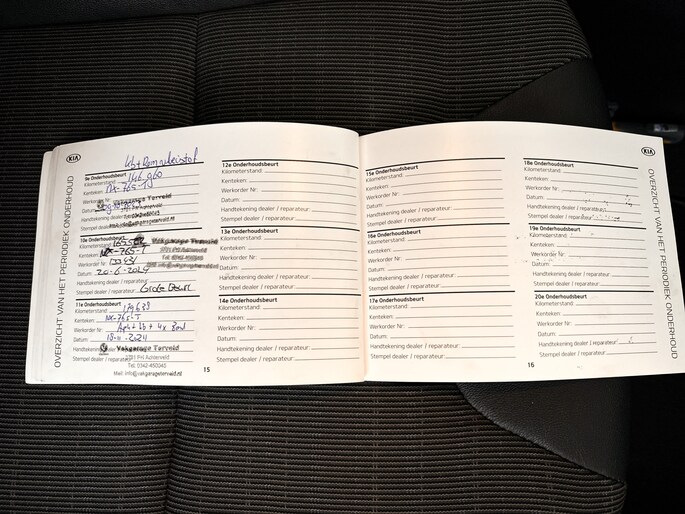 OVERZICHT VAN HET PERIODIEK ONDERHOUD
KIA
9e Onderhoudsbeurt
Kilometerstand: 146.960
Kenteken:
Werkorder Nr:
Datum:
Handtekening dealer
Stempel dealer
10e Onderhoudsbeurt
Kilometerstand:
Kenteken:
Werkorder Nr:
Datum: 20-6-2024
Handtekening dealer / reparateur:
Stempel dealer / reparateur: Grote Beurt
11e Onderhoudsbeurt
Kilometerstand:
Kenteken:
Werkorder Nr:
Datum:
Handtekening dealer Vakgarage Terveld
Stempel dealer / reparateur
Tel: 0342-450045
Mail: info@vakgarageterveld.nl
12e Onderhoudsbeurt
Kilometerstand:
Kenteken:
Werkorder Nr:
Datum:
Handtekening dealer / reparateur:
Stempel dealer / reparateur:
13e Onderhoudsbeurt
Kilometerstand:
Kenteken:
Werkorder Nr:
Datum:
Handtekening dealer / reparateur:
Stempel dealer / reparateur:
14e Onderhoudsbeurt
Kilometerstand:
Kenteken:
Werkorder Nr:
Datum:
Handtekening dealer / reparateur:
Stempel dealer / reparateur:
15
15e Onderhoudsbeurt
Kilometerstand:
Kenteken:
Werkorder Nr:
Datum:
Handtekening dealer / reparateur:
Stempel dealer / reparateur:
16e Onderhoudsbeurt
Kilometerstand:
Kenteken:
Werkorder Nr:
Datum:
Handtekening dealer / reparateur:
Stempel dealer / reparateur:
17e Onderhoudsbeurt
Kilometerstand:
Kenteken:
Werkorder Nr:
Datum:
Handtekening dealer / reparateur:
Stempel dealer / reparateur:
16
18e Onderhoudsbeurt
Kilometerstand:
Kenteken:
Werkorder Nr:
Datum:
Handtekening dealer / reparateur:
Stempel dealer / reparateur:
19e Onderhoudsbeurt
Kilometerstand:
Kenteken:
Werkorder Nr:
Datum:
Handtekening dealer / reparateur:
Stempel dealer / reparateur:
20e Onderhoudsbeurt
Kilometerstand:
Kenteken:
Werkorder Nr:
Datum:
Handtekening dealer / reparateur:
Stempel dealer / reparateur:
KIA
OVERZICHT VAN HET PERIODIEK ONDERHOUD